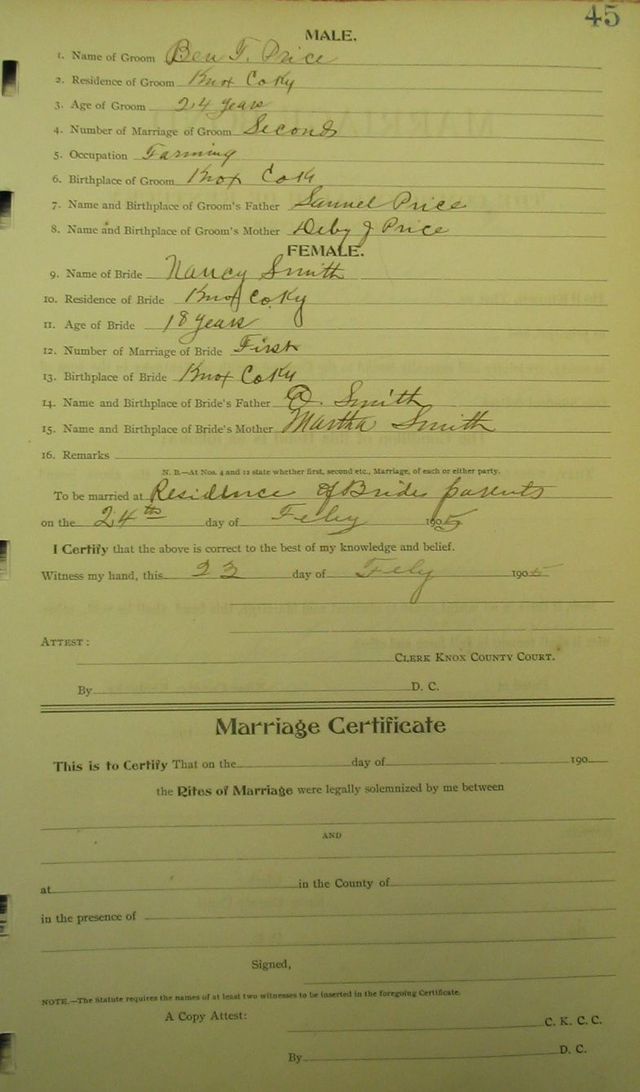 45
MALE.
1. Name of Groom Ben F. Price
2. Residence of Groom Knox Co Ky
3. Age of Groom 24 years
4. Number of Marriage of Groom Second
5. Occupation Farming
6. Birthplace of Groom Knox Co Ky
7. Name and Birthplace of Groom's Father Samuel Price
8. Name and Birthplace of Groom's Mother Deby J Price
FEMALE.
9. Name of Bride Nancy Smith
10. Residence of Bride Knox Co Ky
11. Age of Bride 18 years
12. Number of Marriage of Bride First
13. Birthplace of Bride Knox Co Ky
14. Name and Birthplace of Bride's Father Smith
15. Name and Birthplace of Bride's Mother Martha Smith
16. Remarks
N. B.—At Nos. 4 and 12 state whether first, second etc., Marriage, of each or either party.
To be married at Residence of Brides parents
on the 24th day of Feby 1905
I Certify that the above is correct to the best of my knowledge and belief.
Witness my hand, this 23 day of Feby 1905
ATTEST:
CLERK KNOX COUNTY COURT.
By D. C.
Marriage Certificate
This is to Certify That on the day of 190
the Rites of Marriage were legally solemnized by me between
AND
at in the County of
in the presence of
Signed,
NOTE.—The Statute requires the names of at least two witnesses to be inserted in the foregoing Certificate.
A Copy Attest: C. K. C. C.
By D. C.